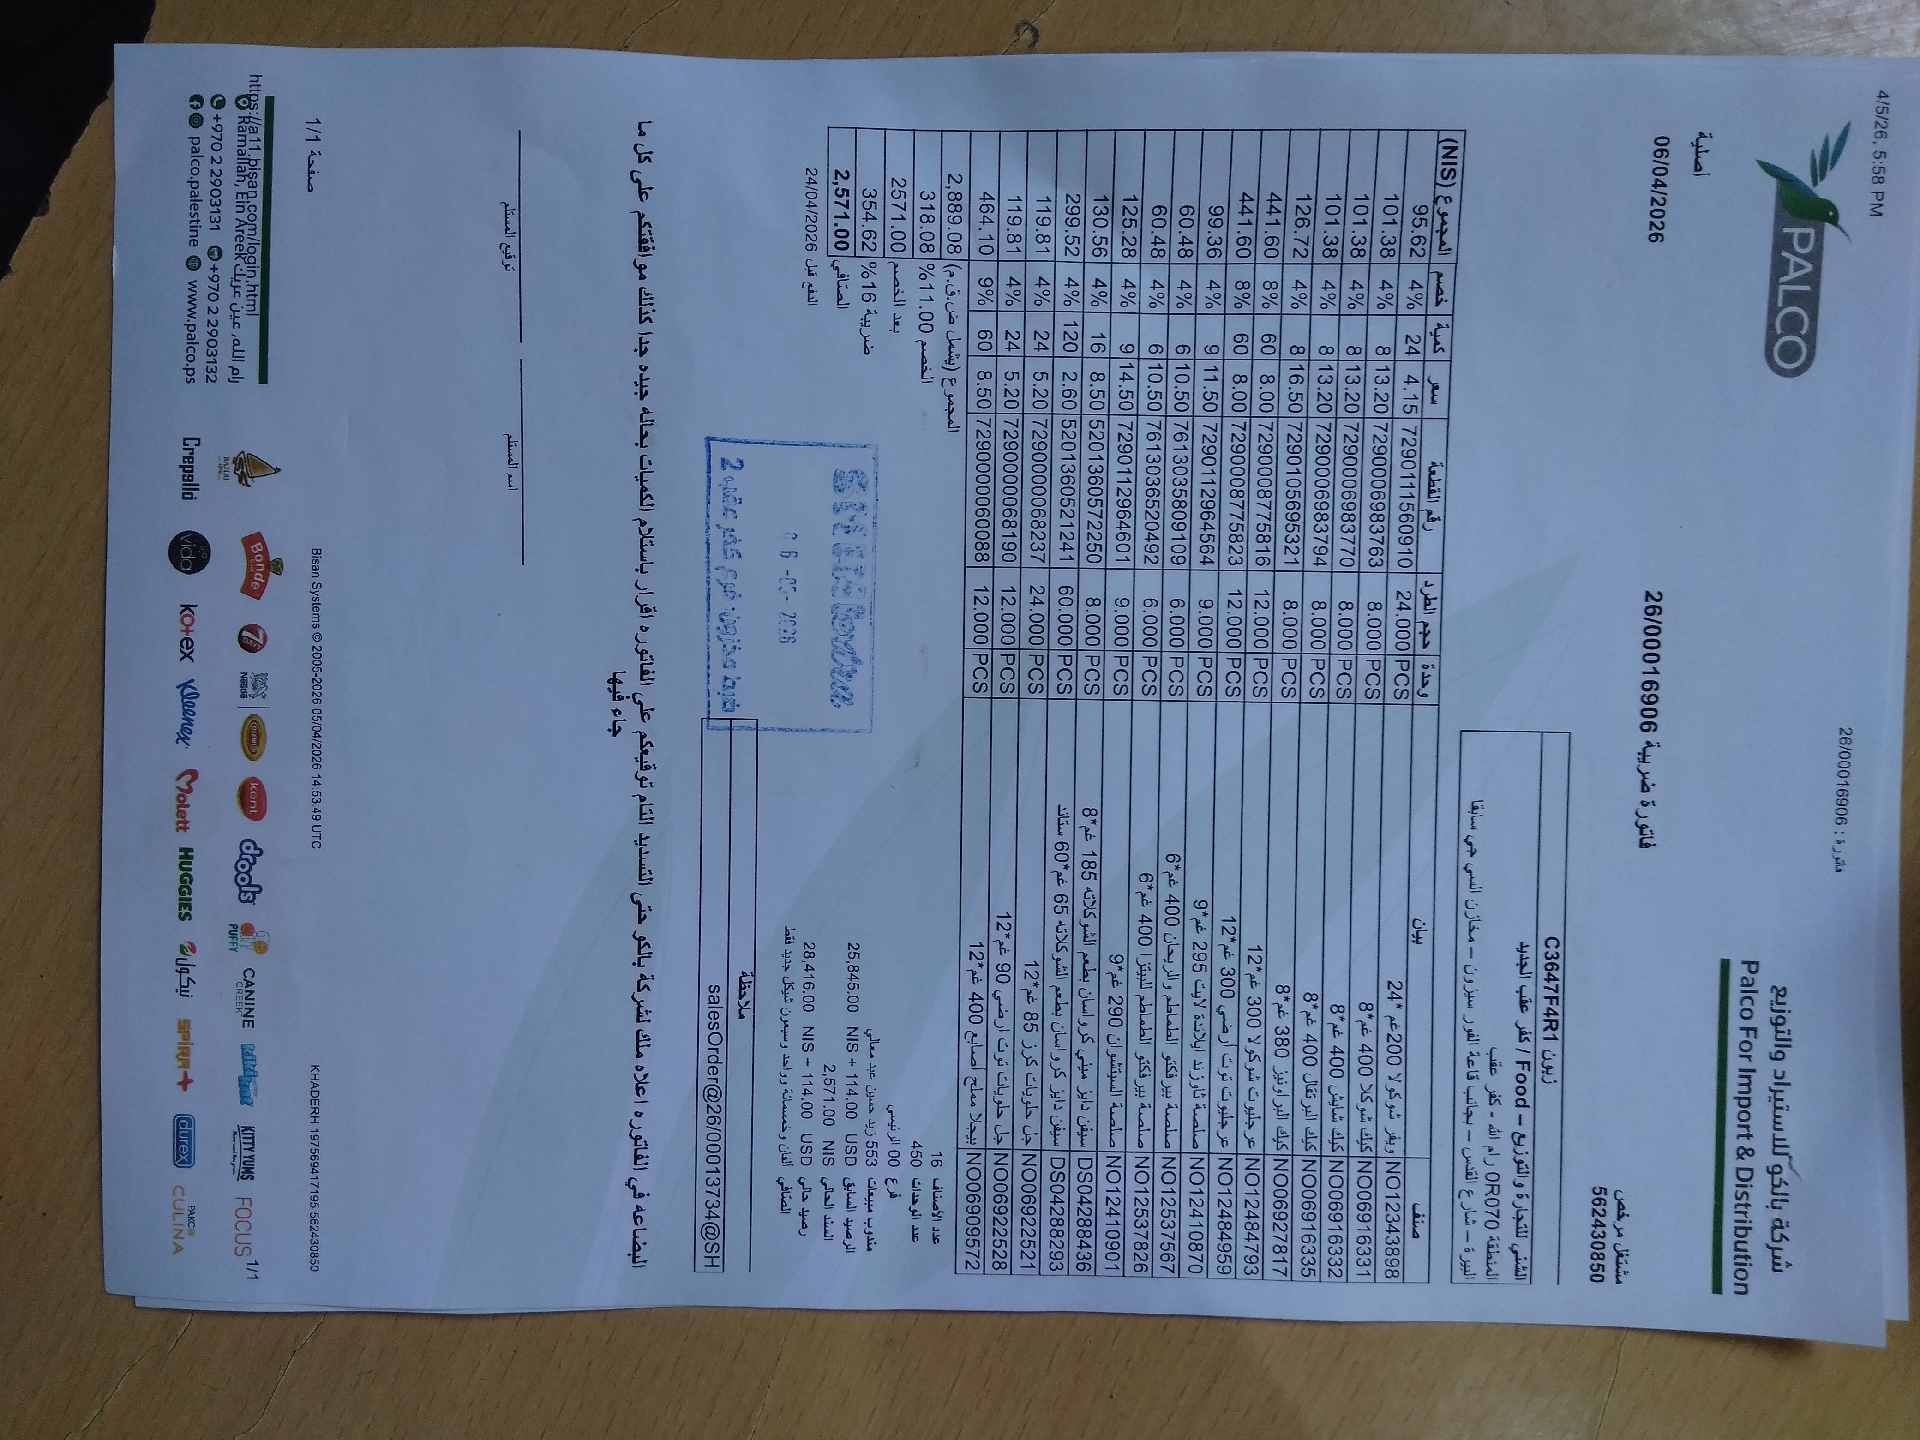 4/5/26, 5:58 PM
فاتورة : 26/00016906
PALCO
شركة بالكو للاستيراد والتوزيع
Palco For Import & Distribution
أصلية
06/04/2026
فاتورة ضريبة 26/00016906
مشتغل مرخص
562430850
زبون C3647F4R1
الشني للتجارة والتوزيع – Food / كفر عقب الجديد
المنطقة 0R070 رام الله - كفر عقب
البيرة – شارع القدس – بجانب قاعة الفور سيزون – مخازن السي جي سابقا
صنف بيان وحدة حجم الطرد رقم القطعة سعر كمية خصم المجموع (NIS)
NO12343898 ويفر شوكولا 200غم *24 PCS 24.000 7290111560910 4.15 24 4% 95.62
NO06916331 كيك شوكلا 400 غم*8 PCS 8.000 7290006983763 13.20 8 4% 101.38
NO06916332 كيك شايش 400 غم*8 PCS 8.000 7290006983770 13.20 8 4% 101.38
NO06916335 كيك البرتقال 400 غم*8 PCS 8.000 7290006983794 13.20 8 4% 101.38
NO06927817 كيك البراونيز 380 غم*8 PCS 8.000 7290105695321 16.50 8 4% 126.72
NO12484793 عرجليوت شوكولا 300 غم*12 PCS 12.000 7290008775816 8.00 60 8% 441.60
NO12484959 عرجليوت توت ارضي 300 غم*12 PCS 12.000 7290008775823 8.00 60 8% 441.60
NO12410870 صلصة ثاوزند ايلاندة لايت 295 غم*9 PCS 9.000 7290112964564 11.50 9 4% 99.36
NO12537567 صلصة بيرفكتو الطماطم والريحان 400 غم*6 PCS 6.000 7613035809109 10.50 6 4% 60.48
NO12537826 صلصة بيرفكتو الطماطم للبيتزا 400 غم*6 PCS 6.000 7613036520492 10.50 6 4% 60.48
NO12410901 صلصة السيتشوان 290 غم*9 PCS 9.000 7290112964601 14.50 9 4% 125.28
DS04288436 سيفن دايز ميني كرواسان بطعم الشوكلاته 185 غم*8 PCS 8.000 5201360572250 8.50 16 4% 130.56
DS04288293 سيفن دايز كرواسان بطعم الشوكلاته 65 غم*60 ستاند PCS 60.000 5201360521241 2.60 120 4% 299.52
NO06922521 جل حلويات كرز 85 غم*12 PCS 24.000 7290000068237 5.20 24 4% 119.81
NO06922528 جل حلويات توت ارضي 90 غم*12 PCS 12.000 7290000068190 5.20 24 4% 119.81
NO06909572 بيجلا مملح أصابع 400 غم*12 PCS 12.000 7290000060088 8.50 60 9% 464.10
عدد الأصناف 16
عدد الوحدات 450
فرع 00 الرئيسي
مندوب مبيعات 553 زيد حسين عبد معالي
الرصيد السابق 25,845.00 NIS + 114.00 USD
السند الحالي 2,571.00 NIS
رصيد حالي 28,416.00 NIS – 114.00 USD
الصافي الفان وخمسمائة وواحد وسبعون شيكل جديد فقط
المجموع (يشمل ض.ق.م) 2,889.08
الخصم 11.00% 318.08
بعد الخصم 2571.00
ضريبة 16% 354.62
الصافي 2,571.00
الدفع قبل 24/04/2026
2026
فرع كفر عقب 2
ملاحظة
salesOrder@26/00013734@SH
البضاعة في الفاتوره اعلاه ملك لشركة بالكو حتى التسديد التام توقيعكم على الفاتوره اقرار باستلام الكميات بحاله جيده جدا كذلك موافقتكم على كل ما
جاء فيها
اسم المستلم
توقيع المستلم
KHADERH 197569417195 562430850
Bisan Systems © 2005-2026 05/04/2026 14:53:49 UTC
صفحة 1/1
https://a11.bisan.com/login.html
1/1
رام الله, عين عريك Ramallah, Ein Areek
+970 2 2903131 +970 2 2903132
palco.palestine www.palco.ps
Bonde
7 DAYS
Nestle
kent
drools
PUFFY
CANINE CREEK
KITTY YUMS
FOCUS
Crepello
vida
kotex
Kleenex
Molett
HUGGIES
نيكول
SPIRR+
durex
CULINA